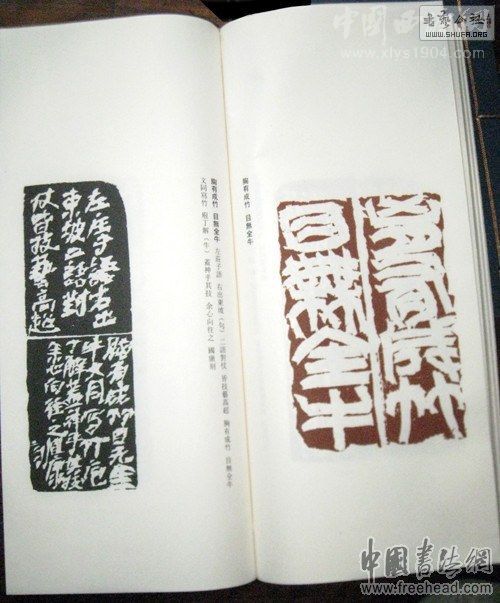 中国西泠网
www.xlys1904.com
书艺公社
WWW.SHUFA.ORG
胸有成竹
目無全牛
胸有成竹 目無全牛
胸有成竹 目無全牛 左莊子語 右出東坡(句) 二語對仗 皆技藝高超 胸有成竹 目無全牛
文同寫竹 庖丁解(牛) 蓋神乎其技 余心向往之 國康刻
左庄子語右出
東坡二語對
仗皆技藝高超
胸有成竹目无全
牛文同写竹庖
丁解蓋神乎其技
余心向往之國康
中國書法網
www.freehead.com